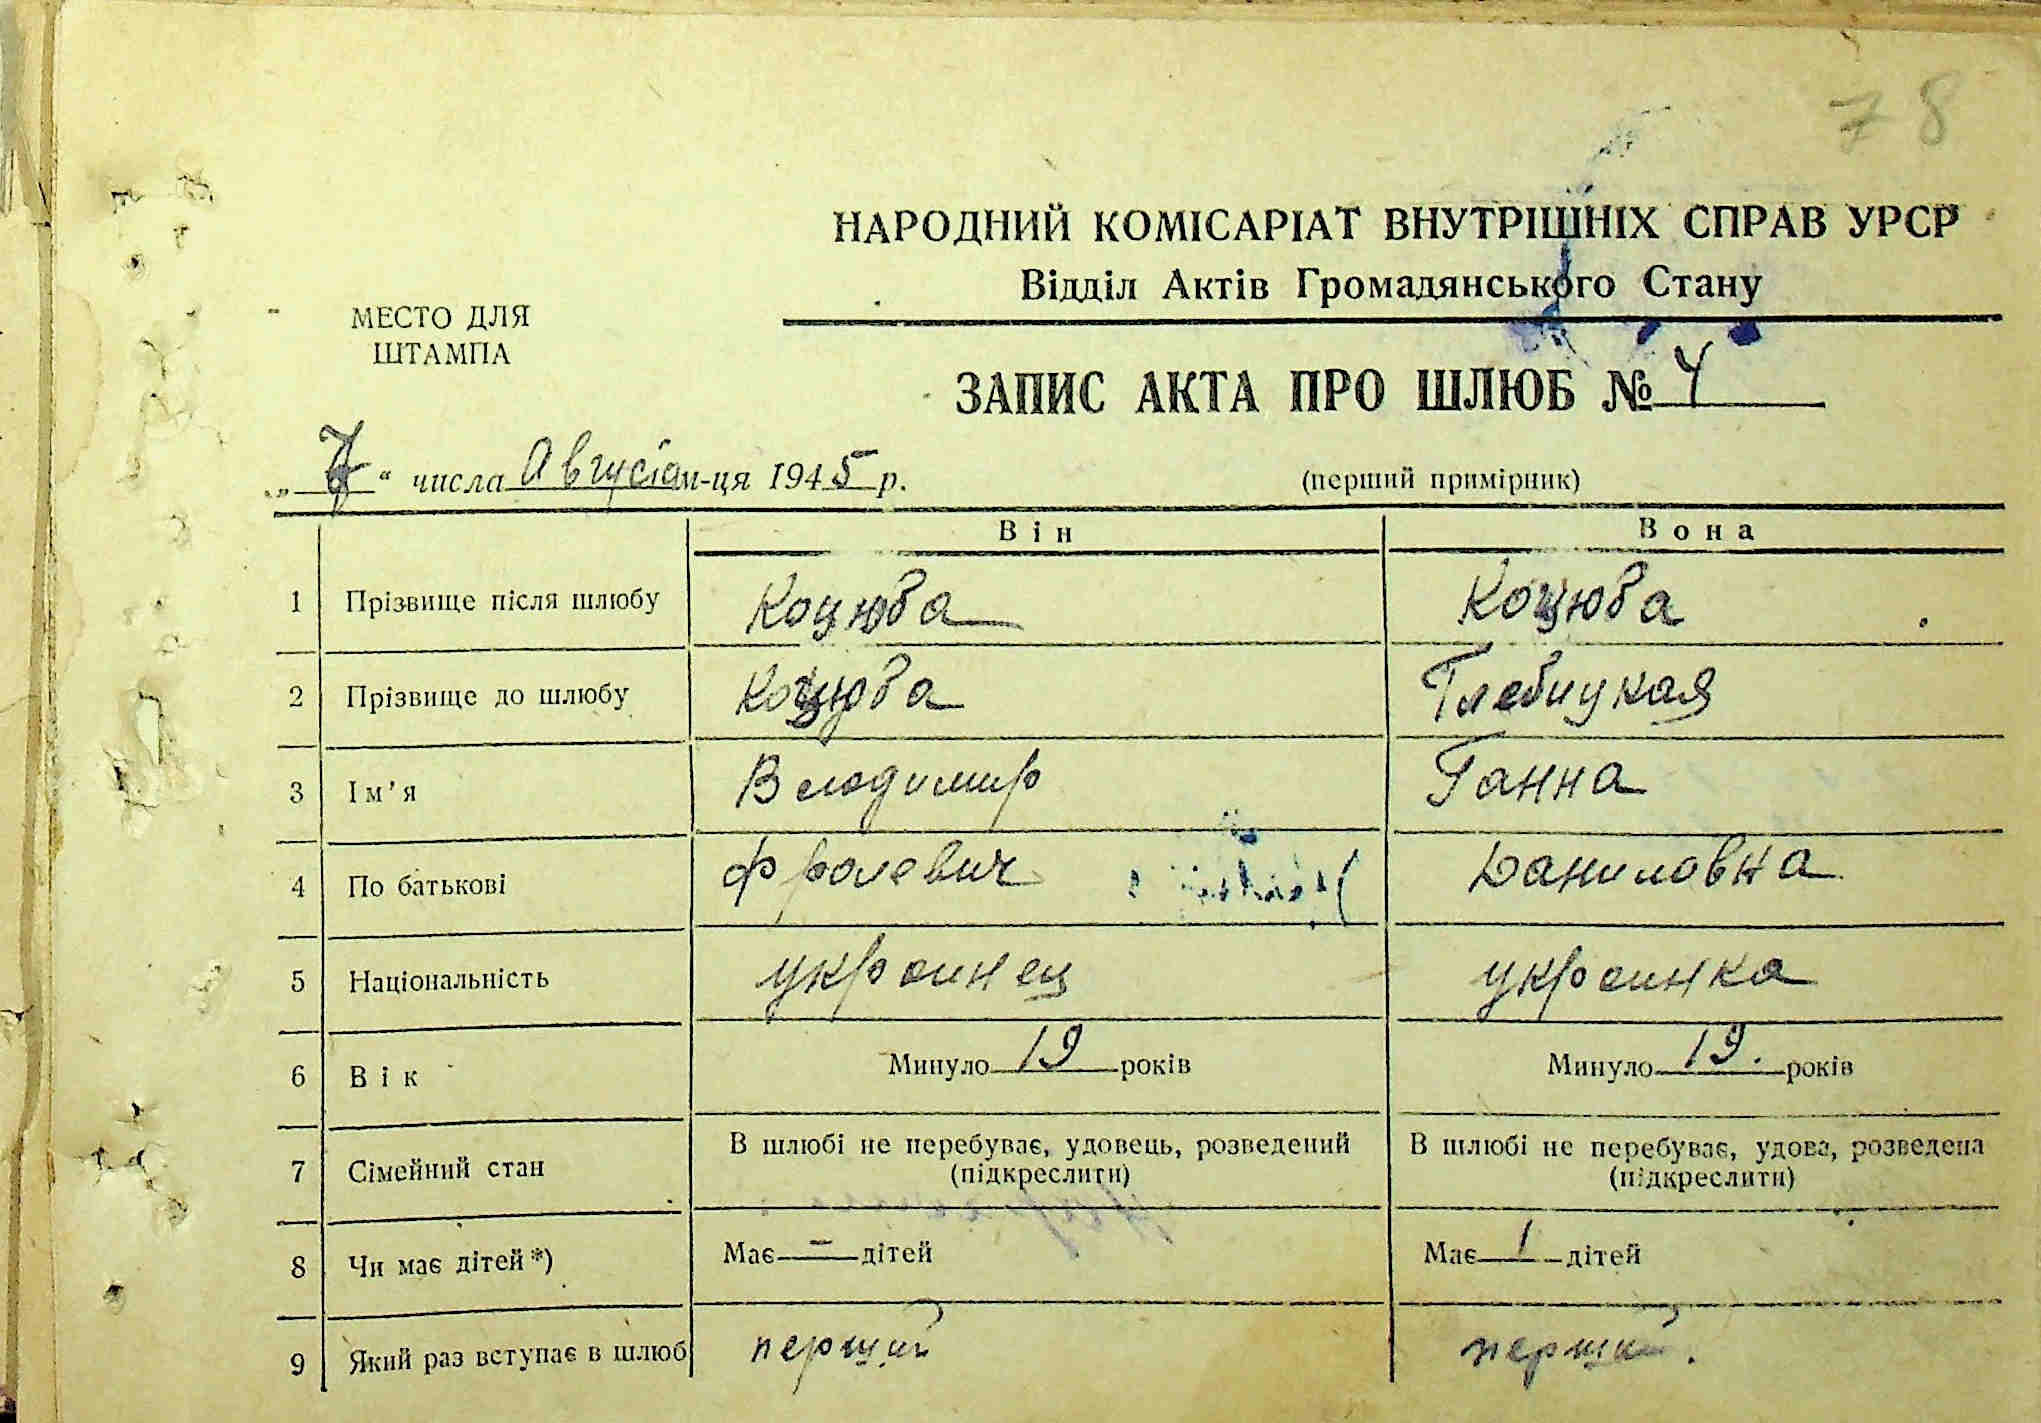 78
НАРОДНИЙ КОМІСАРІАТ ВНУТРІШНІХ СПРАВ УРСР
Відділ Актів Громадянського Стану
МЕСТО ДЛЯ
ШТАМПА
ЗАПИС АКТА ПРО ШЛЮБ № 4
„7“ числа Августа м-ця 1945 р.
(перший примірник)
Він Вона
1 Прізвище після шлюбу Коцюба Коцюба
2 Прізвище до шлюбу Коцюба Глебицкая
3 Ім’я Володимир Ганна
4 По батькові Фролевич Даниловна
5 Національність украинец украинка
6 Вік Минуло 19 років Минуло 19. років
7 Сімейний стан В шлюбі не перебуває, удовець, розведений (підкреслити) В шлюбі не перебуває, удова, розведена (підкреслити)
8 Чи має дітей *) Має - дітей Має 1 дітей
9 Який раз вступає в шлюб перший перший.